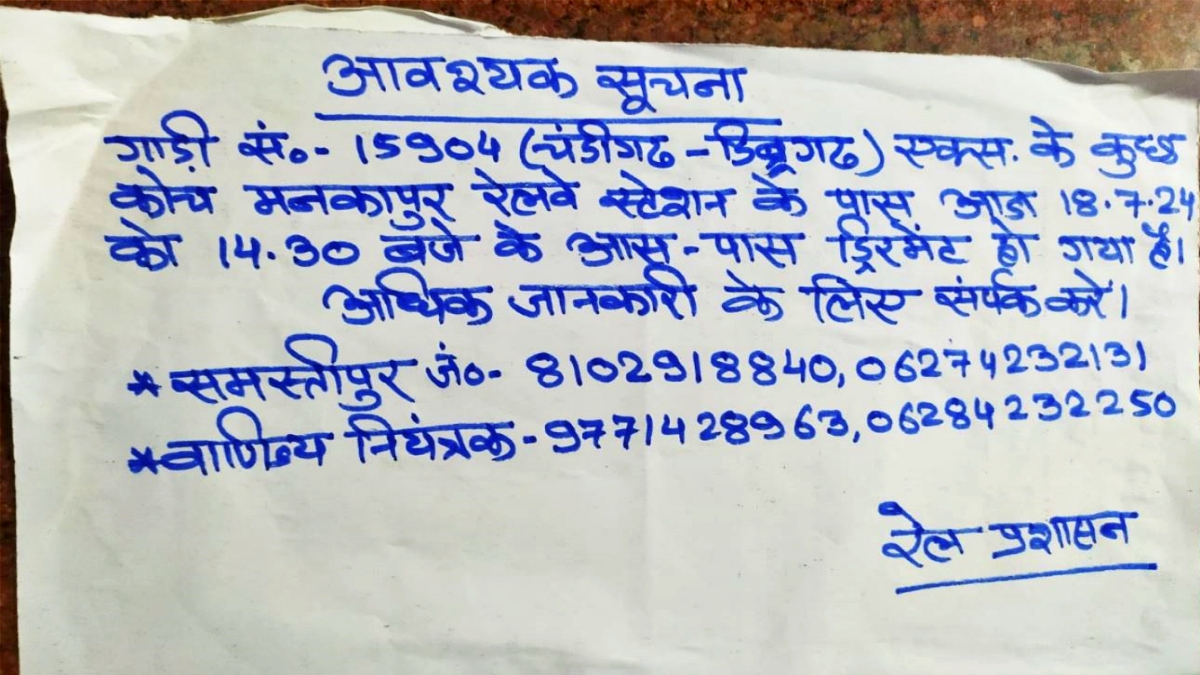 आवश्यक सूचना
गाड़ी सं०- 15904 (चंडीगढ-डिब्रूगढ) एक्स. के कुछ
कोच मनकापुर रेलवे स्टेशन के पास आज 18.7.24
को 14.30 बजे के आस-पास ड्रिरमेंट हो गया है।
अधिक जानकारी के लिए संर्पक करें।
*समस्तीपुर जं०- 8102918840, 06274232131
*वाणिज्य नियंत्रक-9771428963,06284232250
रेल प्रशासन